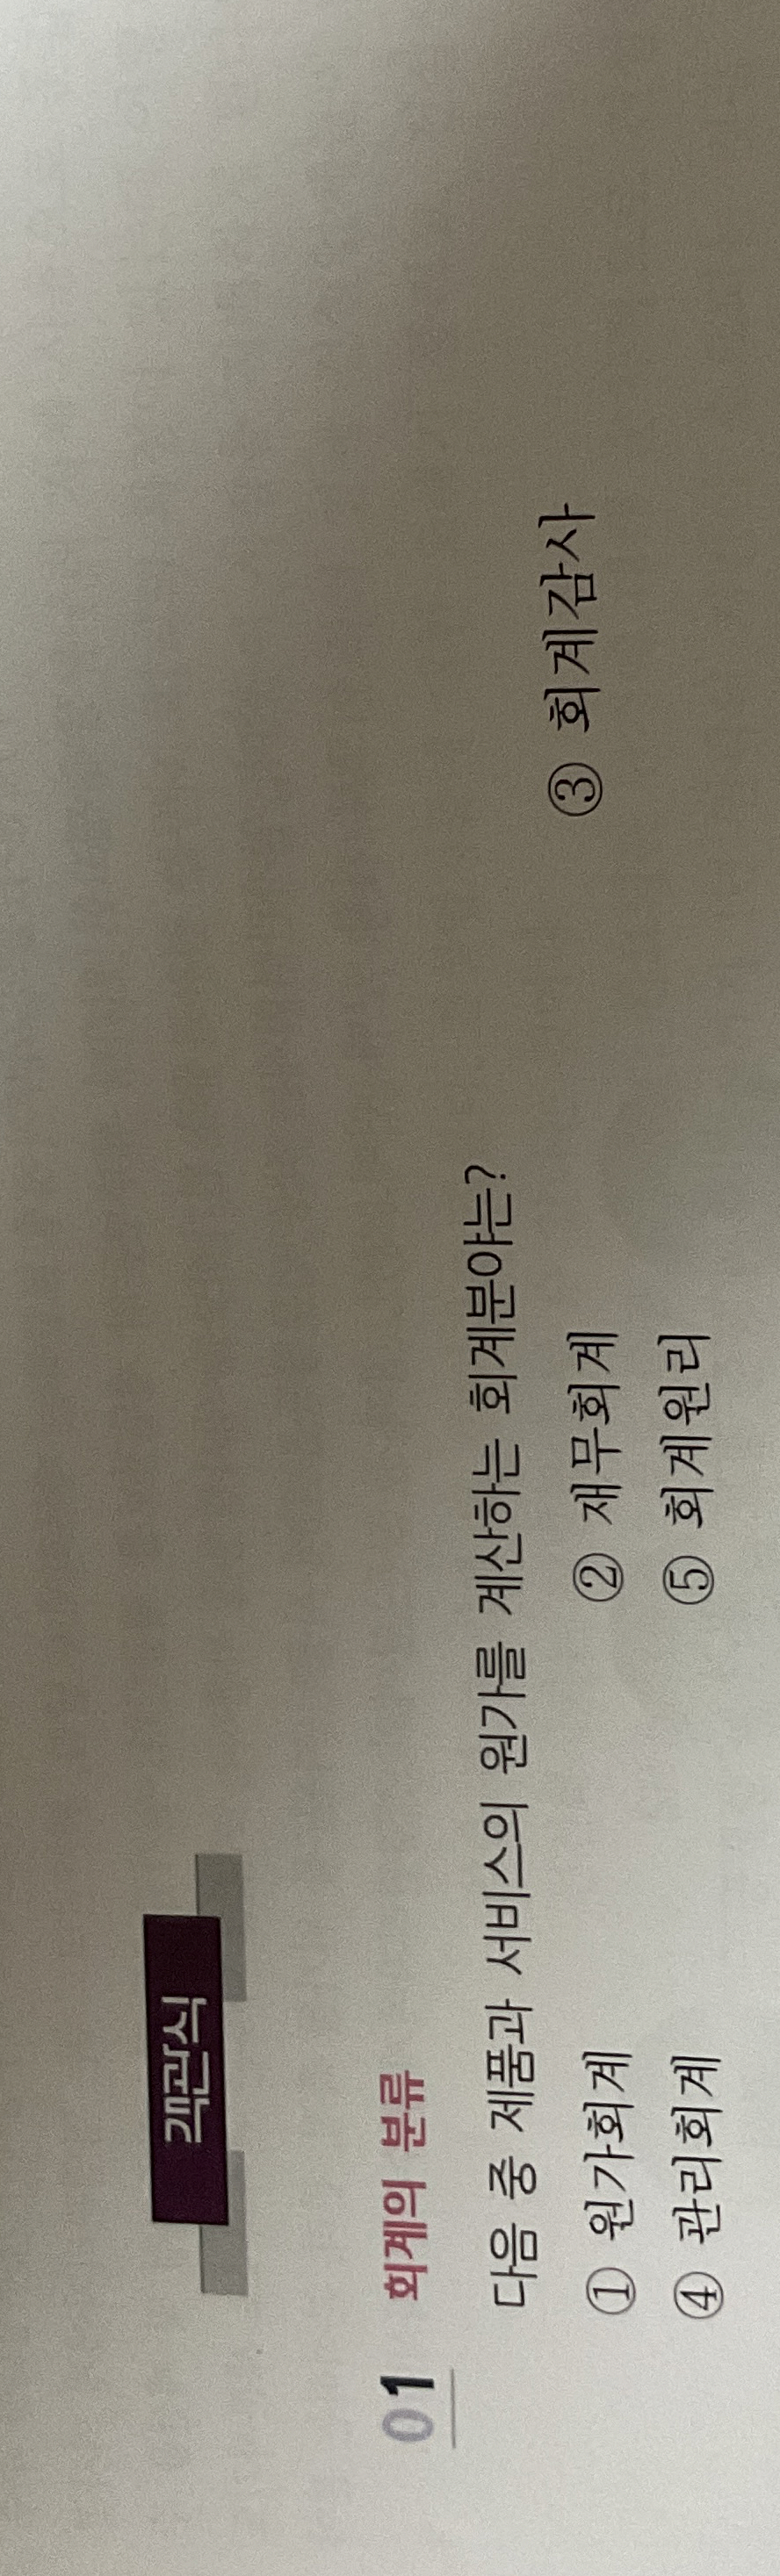 객관식
01 회계의 분류
다음 중 제품과 서비스의 원가를 계산하는 회계분야는?
① 원가회계 ② 재무회계 ③ 회계감사
④ 관리회계 ⑤ 회계원리